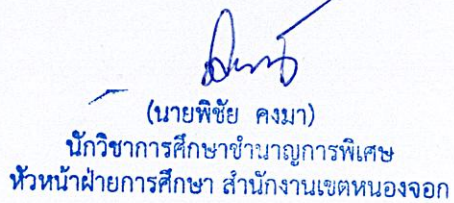 (นายพิชัย คงมา)
นักวิชาการศึกษาชำนาญการพิเศษ
หัวหน้าฝ่ายการศึกษา สำนักงานเขตหนองจอก